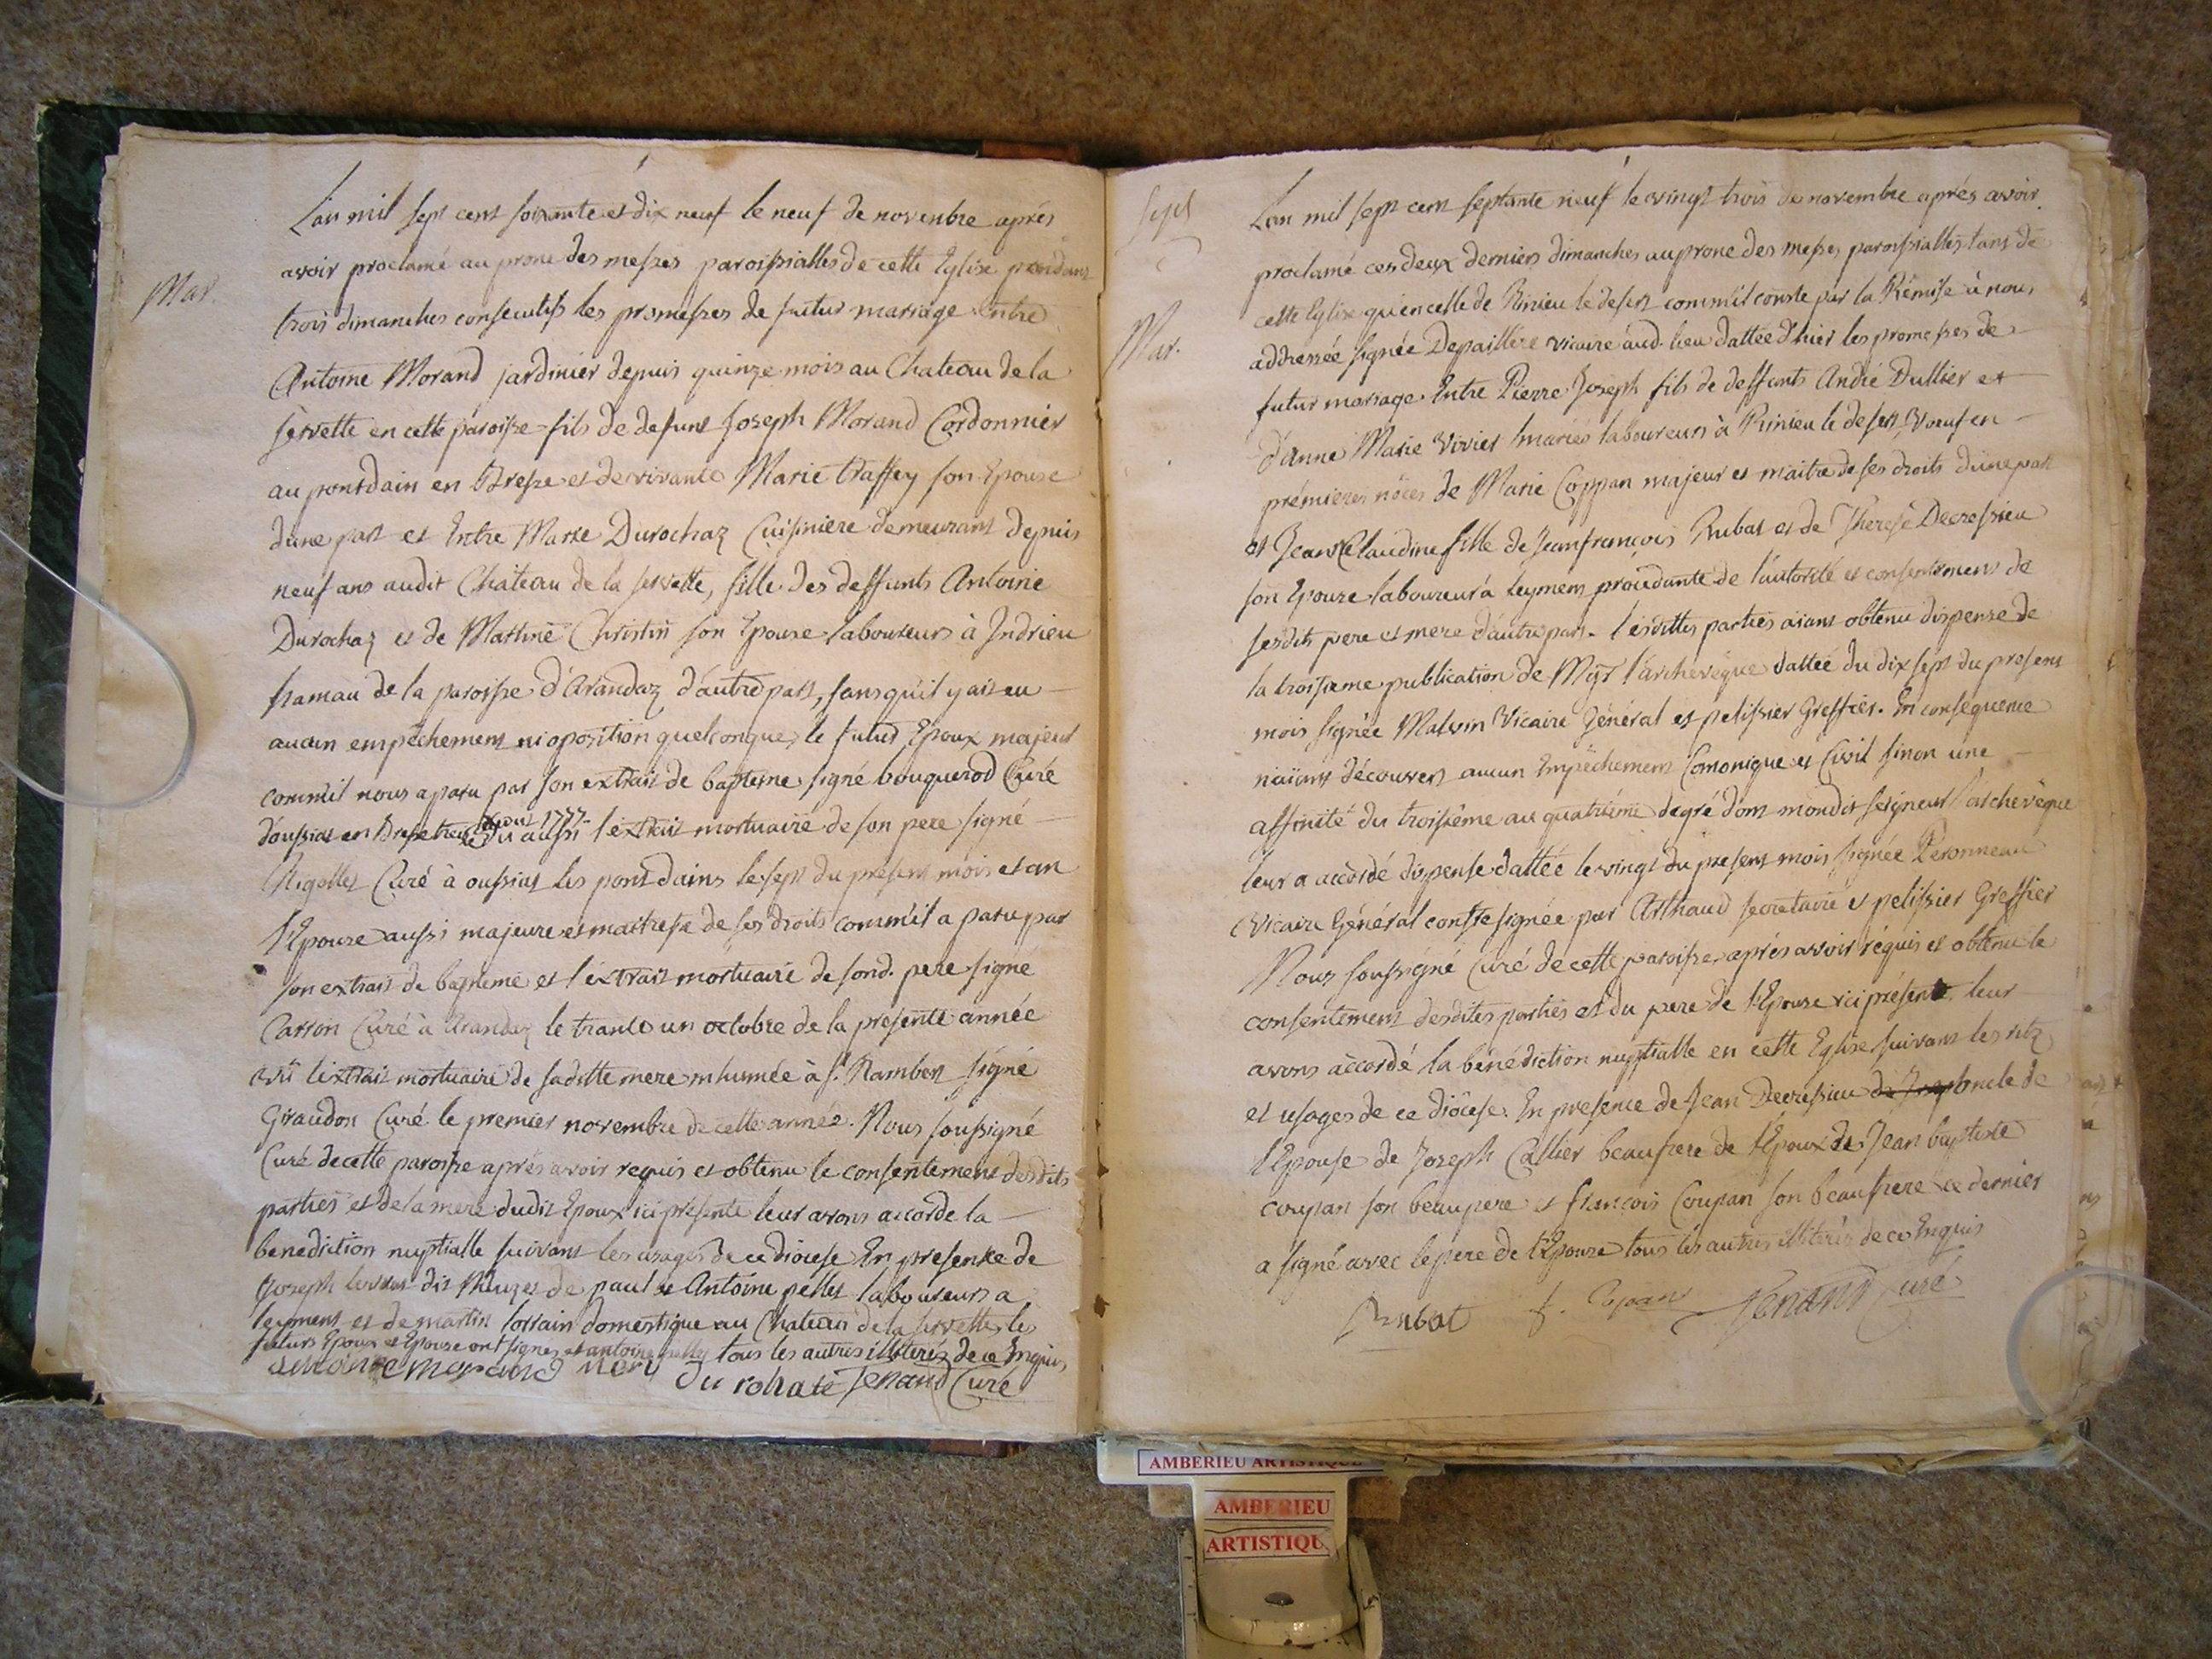 Mar.
L'an mil sept cent soixante et dix neuf le neuf de novenbre aprés
avoir proclamé au prone des messes paroissialles de cette Eglise pendant
trois dimanches consecutifs les promesses de futur mariage Entre
Antoine Morand jardinier depuis quinze mois au Chateau de la
servette en cette paroisse fils de defunt Joseph Morand Cordonnier
au pontdain en Bresse et de vivante Marie traffey son Epouse
dune part et Entre Marie Durochaz Cuisiniere demeurant depuis
neuf ans audit Chateau de la servette, fille des deffunts Antoine
Durochaz et de Martine Christin son Epouse laboureurs à Indrieu
hamau de la paroisse d'Arandaz d'autre part, sans qu'il y ait eu
aucun empêchement ni oposition quelconque, le futur Epoux majeur
comm'il nous a paru par son extrait de bapteme signé bouquerod Curé
d'oussiat en Bresse 1777. vu aussi l'extrait mortuaire de son pere signé
Curé à oussiat les pont dains le sept du présent mois et an
l'Epouse aussi majeure et maitresse de ses droits comm'il a paru par
son extrait de baptême et l'extrait mortuaire de sond. pere signé
Carron Curé à Arandaz le trante un octobre de la presente année
vû l'extrait mortuaire de saditte mere inhumée à st. Rambert signé
Giraudon Curé le premier novembre de cette année. Nous soussigné
Curé de cette paroisse aprés avoir requis et obtenu le consentement desdits
parties et de la mere dudit Epoux ici présente leur avons accordé la
benediction nuptialle suivant les usages de ce diocese En presence de
Joseph dit de paul et Antoine pellet laboureurs a
leyment et de martin lorrain domestique au Chateau de la servette, les
futurs Epoux et Epouse ont signés et antoine pellet tous les autres illiterés de ce Enquis
antoine morand mari du rohate Jenand Curé
Sept
Mar.
L'an mil sept cent septante neuf le vingt trois de novembre aprés avoir
proclamé ces deux derniers dimanches au prone des messes paroissialles tant de
cette Eglise qu'en celle de Rinieu le desert comm'il conste par la Rémise à nous
addressée signée Depaillere vicaire aud. lieu dattée d'hier les promesses de
futur mariage Entre Pierre Joseph fils de deffunts André Dullier et
d'anne Marie Vivier mariés laboureurs à Rinieu le desert, Voeuf en
prémieres nôces de Marie Coppan majeur et maitre de ses droits d'une part
et Jeanne Claudine fille de Jeanfrançois Rubat et de Therese Decrossieu
son Epouse laboureur à leyment procedante de l'autorité et consentement de
sesdits pere et mere d'autre part. lesdittes parties aiant obtenu dispense de
la troisieme publication de Mgr l'archevêque dattée du dix sept du present
mois signée Malvin Vicaire Général et pelissier Greffier. En consequence
n'aiiant découvert aucun Empêchement Comonique et Civil sinon une
affinité du troisiême au quatriéme degré dont mondit seigneur l'archevêque
leur a accordé dispense dattée le vingt du present mois signée Peronneau
Vicaire Général contresignée par Arthaud secretaire et pelissier Greffier
Nous soussigné Curé de cette paroisse, aprés avoir réquis et obtenu le
consentement desdites parties et du pere de l'Epouse ici présent leur
avons accordé la bénédiction nuptialle en cette Eglise suivant les ritz
et usages de ce diôcese. En presence de Jean Decrossieu oncle de
l'Epouse de Joseph Callier beaufrere de l'Epoux de Jean baptiste
coupan son beaupere et françois Coupan son beaufrere ce dernier
a signé avec le pere de l'Epouse tous les autres illiterés de ce Enquis
Rubat f. Copan Jenand Curé
AMBERIEU ARTISTIQUE
AMBERIEU
ARTISTIQU